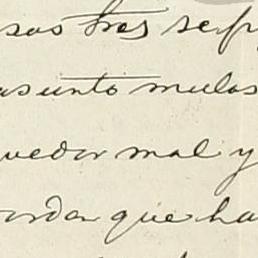 sos tres sep
asunto mulas
quedar mal y
ordar que ha